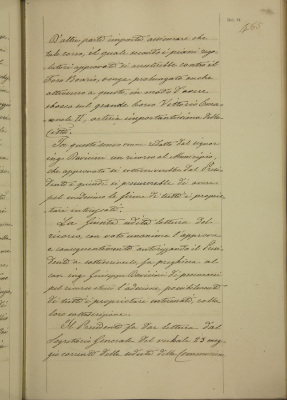 D'altra parte importa assicurarsi che
tale corso, il quale secondo i piani rego-
latori approvati si arresterebbe contro il
Foro Boario, venga prolungato anche
attraverso a questo, in modo d'avere
sbocco sul grande corso Vittorio Ema-
nuele II, arteria importantissima della
Città.
In questo senso venne redatto dal signor
ing. un ricorso al Municipio,
che approvato si sottoscriverebbe dal Presi-
dente e quindi si procurerebbe di avere
pel medesimo le firme di tutti i proprie-
tari interessati.
La Giunta udita lettura del
ricorso con voto unanime l'approva
e conseguentemente autorizzando il Presi-
dente a sottoscriverlo, fa preghiera al
cav. ing. Giuseppe di procurarsi
pel ricorso stesso l'adesione, possibilmente
di tutti i proprietari interessati, colla
loro sottoscrizione.
Il Presidente fa dar lettura dal
Segretario Generale del verbale 23 mag-
gio corrente della seduta della Commissione